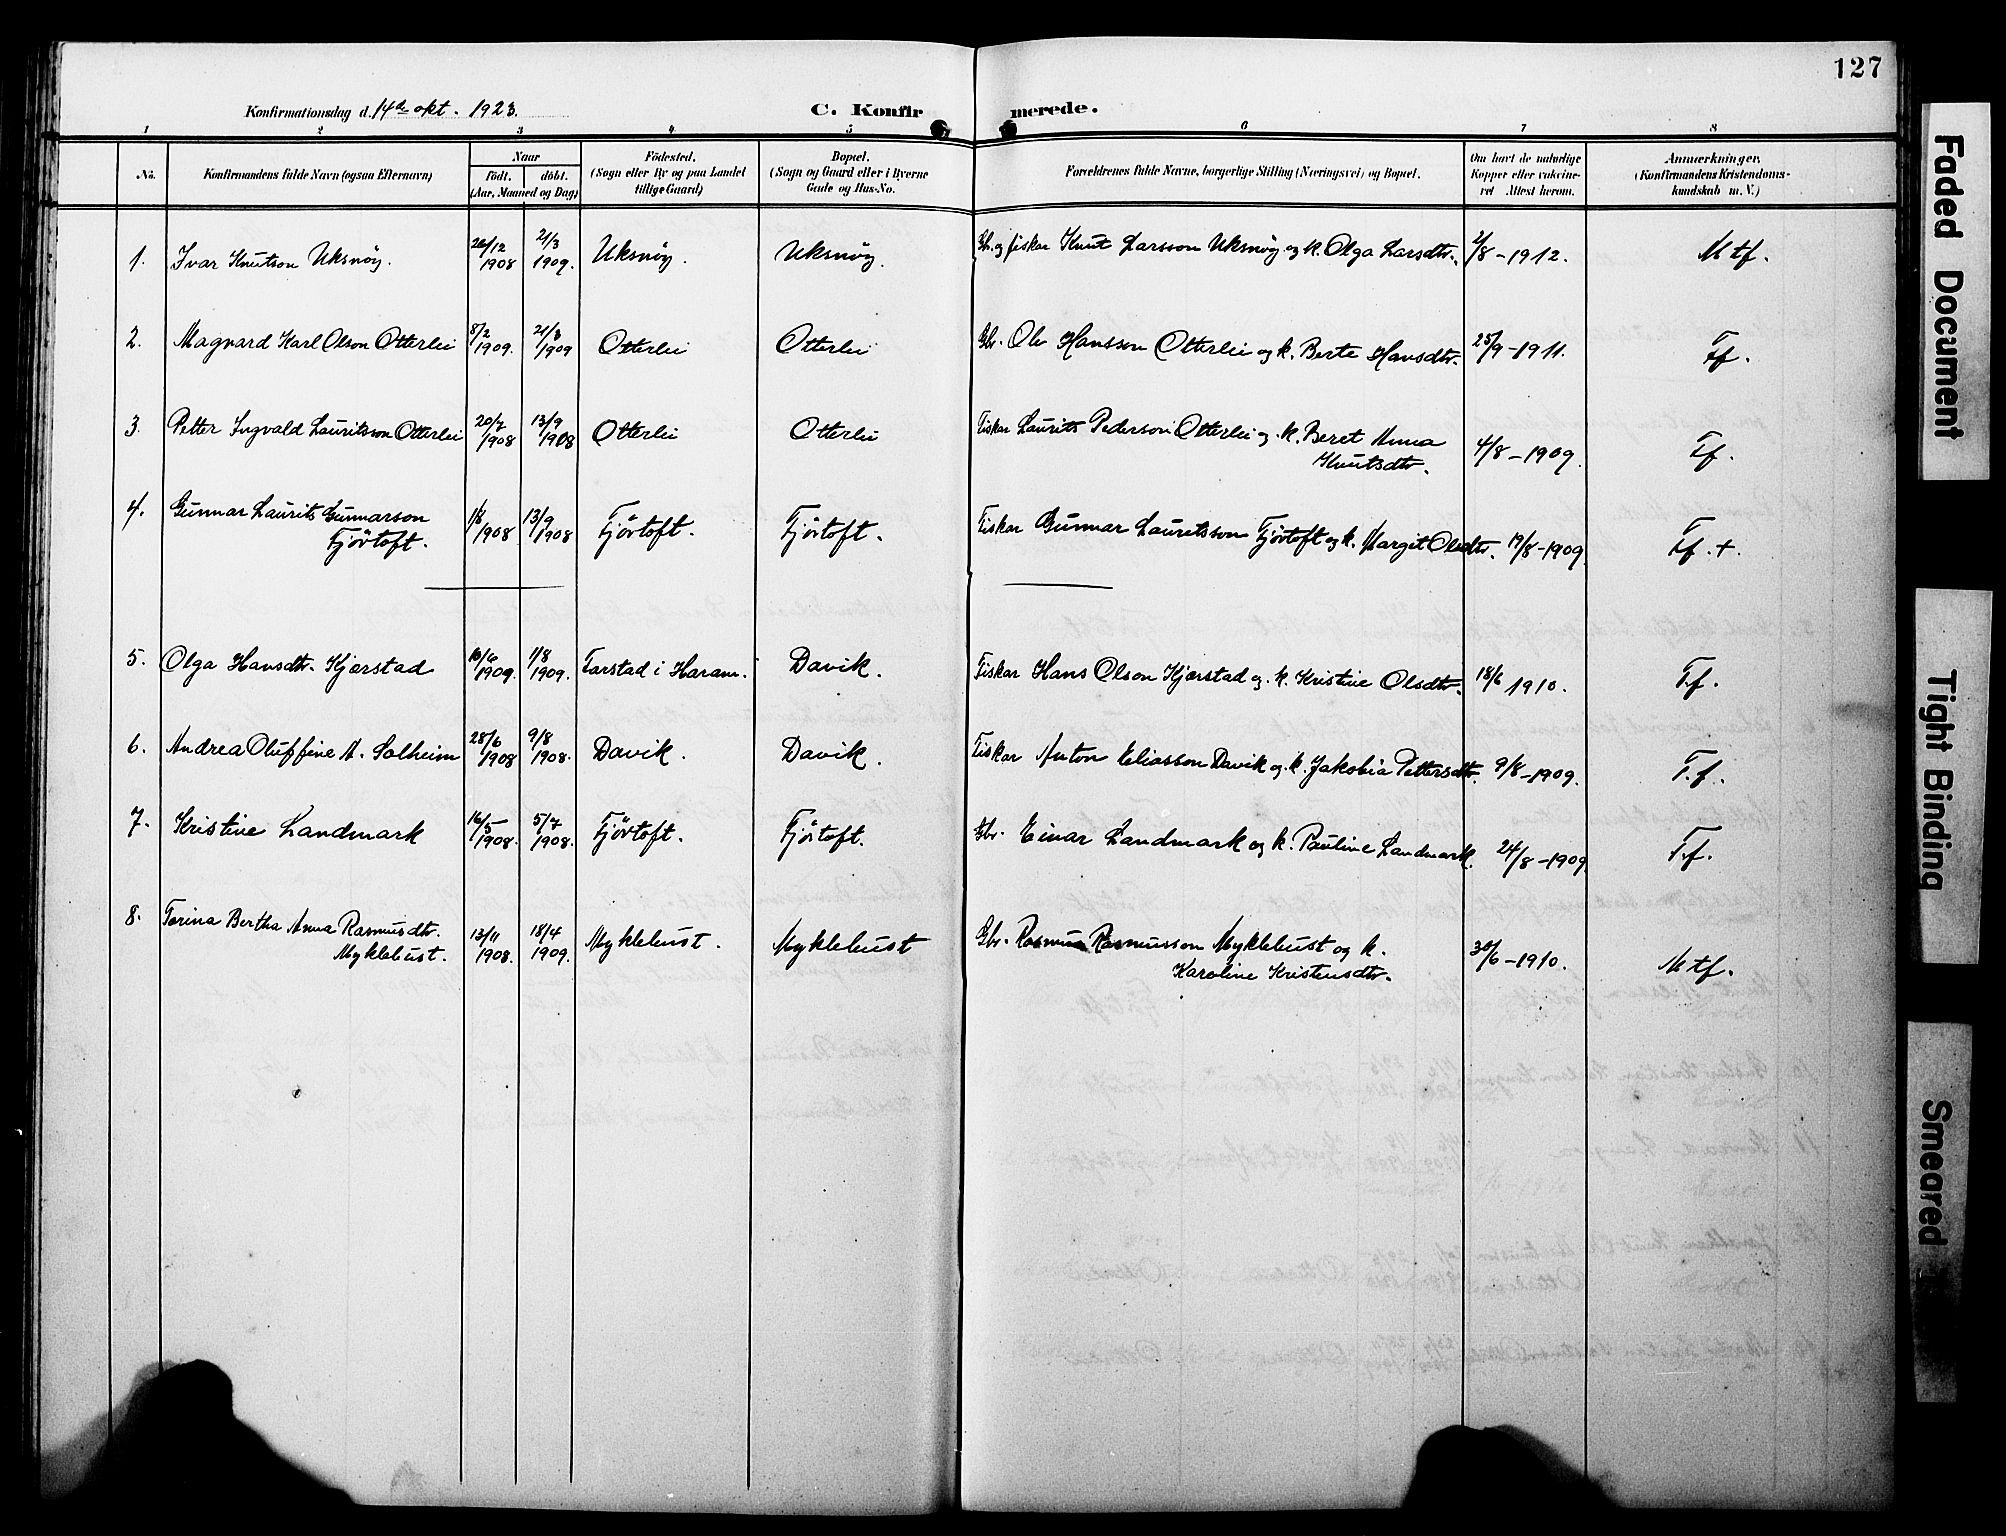 127
Konfirmationsdag d. 14de okt. 1923. C. Konfirmerede.
1 2 3 4 5 6 7 8
No. Konfirmandens fulde Navn (ogsaa Efternavn) Naar født. døbt. (Aar, Maaned og Dag) Födested. (Sogn eller By og paa Landet tillige Gaard) Bopæl. (Sogn og Gaard eller i Byerne Gade og Hus-No. Forældrenes fulde Navne, borgerlige Stilling (Næringsvei) og Bopæl. Om havt de naturlige Kopper eller vakcineret Attest herom. Anmærkninger. (Konfirmandens Kristendomskundskab m. V.)
1. Ivar Knutson Uksnöy. 26/12 1908 21/3 1909. Uksnöy. Uksnöy. Gb. og fiskar Knut Larsson Uksnöy og k. Olga Larsdtr. 2/8 - 1912. Mtf.
2. Magnard Karl Olson Otterlei 8/2 1909. 21/3 1909 Otterlei Otterlei Gbr. Ole Hansson Otterlei og k. Berte Hansdtr. 25/9 - 1911. Tf.
3. Petter Ingvald Lauritsson Otterlei 20/7 1908 13/9 1908 Otterlei Otterlei Fiskar Laurits Pederson Otterlei og k. Beret Anna
Knutsdtr. 4/8 - 1909. Tf.
4. Gunnar Laurits Gunnarson
Fjörtoft. 1/8 1908 13/9 1908 Fjörtoft. Fjörtoft. Fiskar Gunnar Lauritsson Fjörtoft og k. Margit Olsdtr. 19/8 - 1909. Tf. +.
5. Olga Hansdtr. Kjærstad 10/6 1909. 1/8 1909. Farstad i Haram. Davik. Fiskar Hans Olson Kjærstad og k. Kristine Olsdtr. 18/6 1910. T.f.
6. Andrea Oluffine A. Solheim 28/6 1908 9/8 1908. Davik. Davik. Fiskar Anton Eliasson Davik og k. Jakobia Pettersdtr. 9/8 - 1909. T.f.
7. Kristine Landmark 16/5 1908. 5/7 1908. Fjörtoft. Fjörtoft. Gbr. Einar Landmark og k. Pauline Landmark. 24/8 - 1909 T.f.
8. Torina Bertha Anna Rasmusdtr.
Myklebust. 13/11 1908. 18/4 1909. Myklebust. Myklebust Gbr. Rasmus Rasmusson Myklebust og k.
Karoline Kristensdtr. 30/6 - 1910. Mtf.
Faded Document
Tight Binding
Smeared